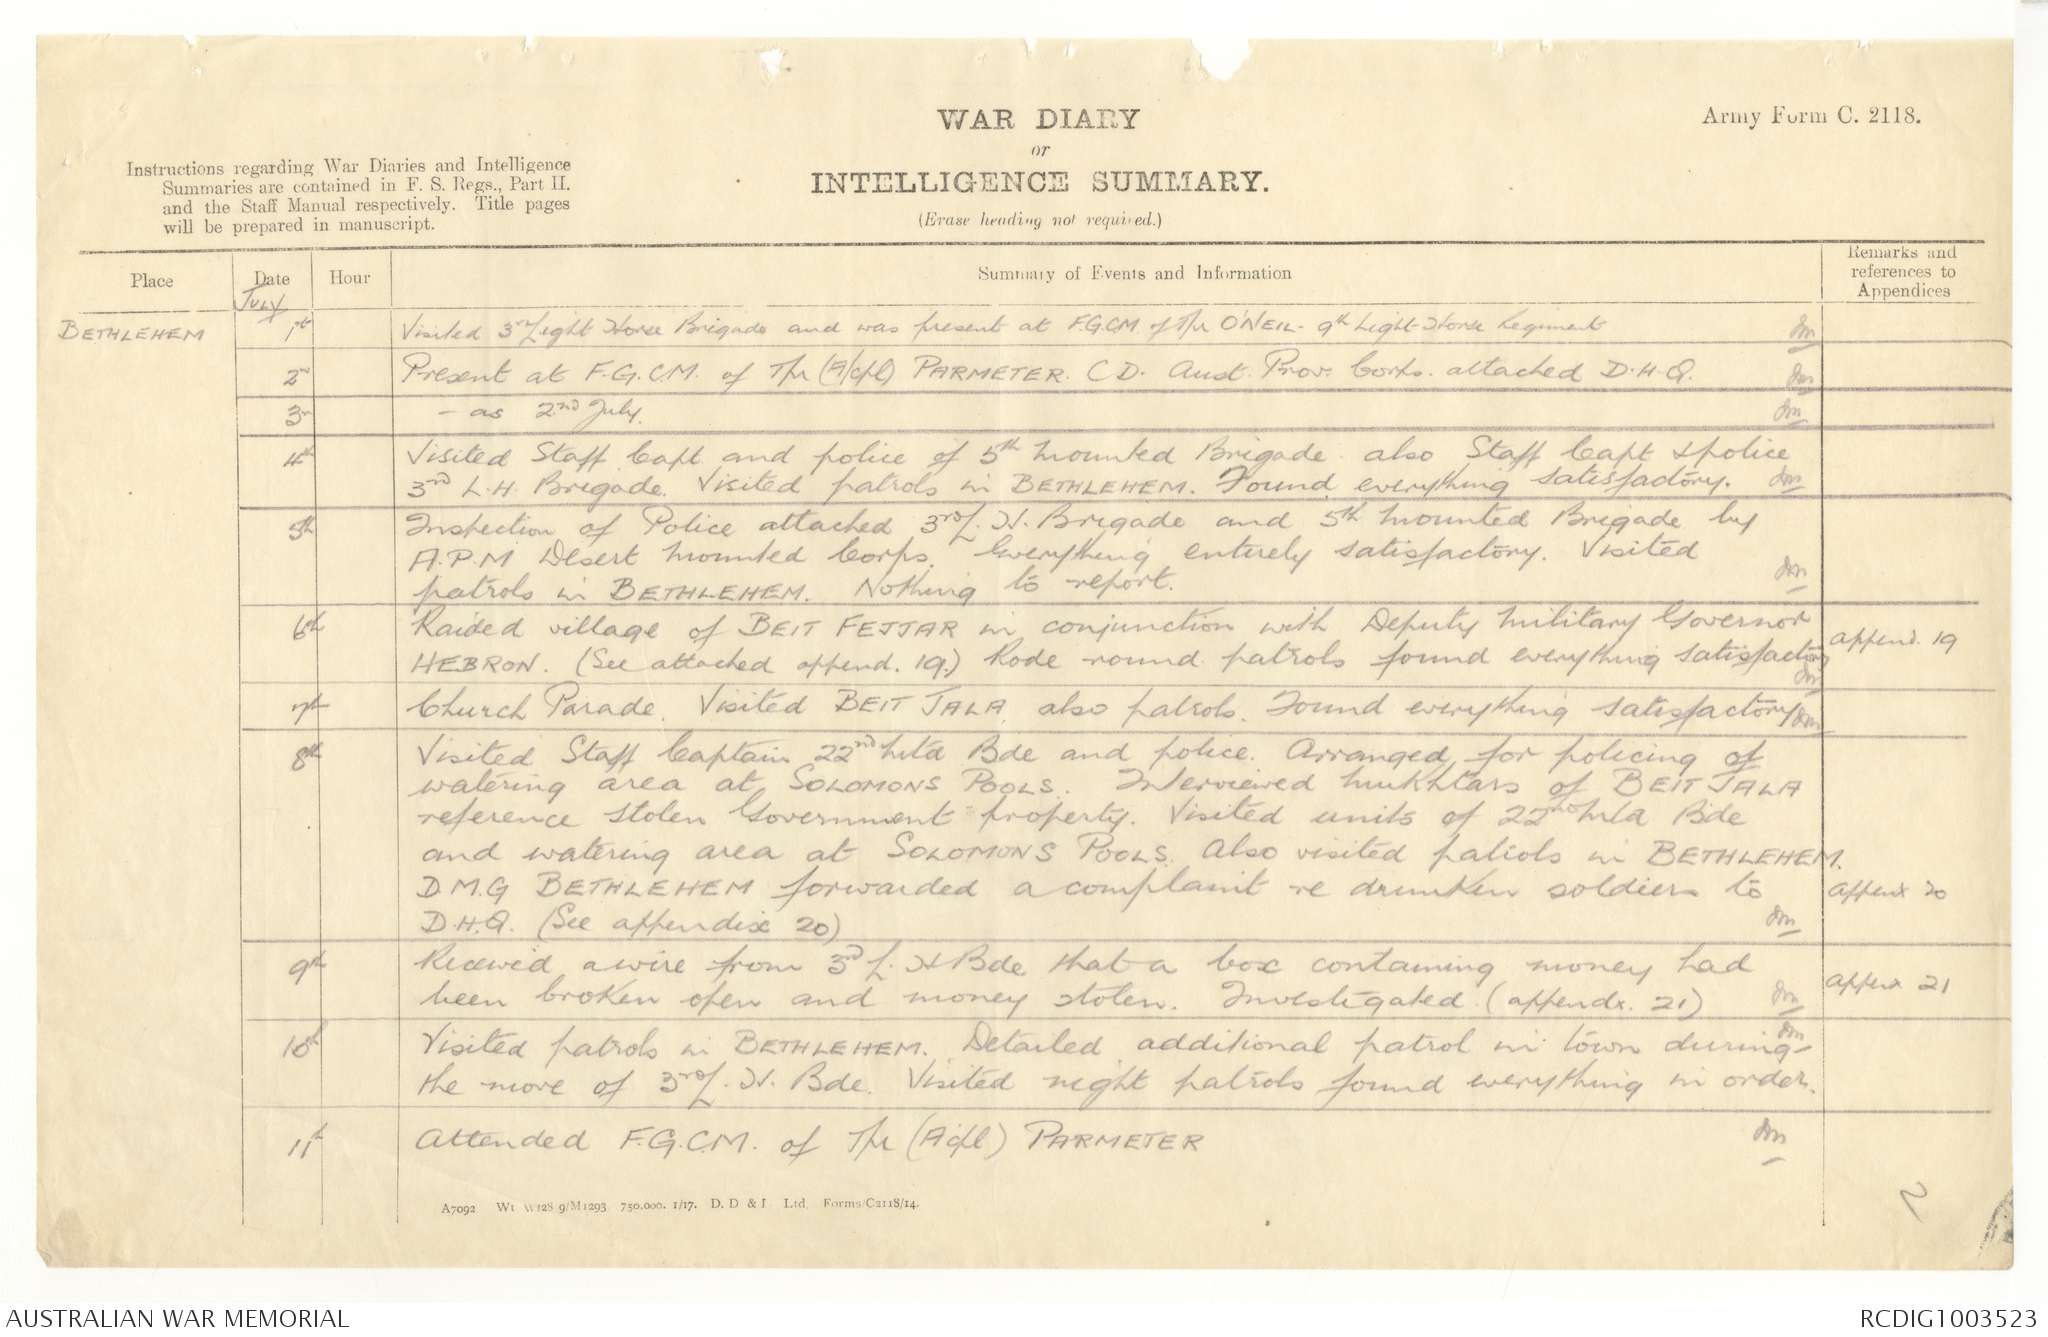 WAR DIARY
or
INTELLIGENCE SUMMARY.
(Erase heading not required.)
Army Form C. 2118.
Instructions regarding War Diaries and Intelligence
Summaries are contained in F. S. Regs., Part II.
and the Staff Manual respectively. Title pages
will be prepared in manuscript.
Place
Date
Hour
Summary of Events and Information
Remarks and
references to
Appendices
July
BETHLEHEM 1st Visited 3rd Light Horse Brigade and was present at F.G.C.M. of Tpr O'NEIL - 9th Light Horse Regiment
2nd Present at F.G.C.M. of Tpr (A/cpl) PARMETER. C D. Aust. Prov. Corps. attached D.H.Q.
3rd - as 2nd July.
4th Visited Staff Capt and police of 5th Mounted Brigade also Staff Capt & police
3rd L.H. Brigade. Visited patrols in BETHLEHEM. Found everything satisfactory.
5th Inspection of Police attached 3rd L. H. Brigade and 5th Mounted Brigade by
A.P.M Desert Mounted Corps. Everything entirely satisfactory. Visited
patrols in BETHLEHEM. Nothing to report.
6th Raided village of BEIT FEJJAR in conjunction with Deputy Military Governor
HEBRON. (See attached append. 19.) Rode round patrols found everything satisfactory
append. 19
7th Church Parade. Visited BEIT JALA also patrols. Found everything satisfactory
8th Visited Staff Captain 22nd Mtd Bde and police. Arranged for policing of
watering area at SOLOMONS POOLS. Interviewed Mukhtars of BEIT JALA
reference stolen Government property. Visited units of 22nd Mtd Bde
and watering area at SOLOMONS POOLS. Also visited patrols in BETHLEHEM.
D.M.G BETHLEHEM forwarded a complaint re drunken soldiers to
D.H.Q. (See appendix 20)
appenx 20
9th Received a wire from 3rd L. H Bde that a box containing money had
been broken open and money stolen. Investigated. (appendx. 21)
appenx 21
10th Visited patrols in BETHLEHEM. Detailed additional patrol in town during
the move of 3rd L. H. Bde. Visited night patrols found everything in order.
11th Attended F.G.C.M. of Tpr (A/cpl) PARMETER
A7092 Wt W128 9/M1293 750,000. 1/17. D. D & L Ltd. Forms/C2118/14.
2
AUSTRALIAN WAR MEMORIAL
RCDIG1003523